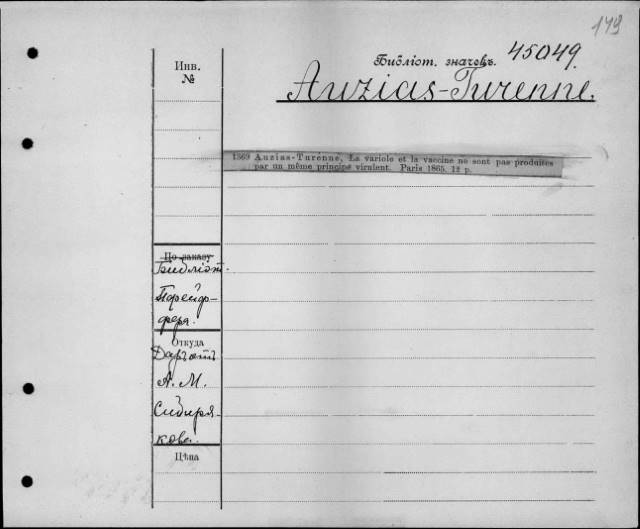 149
Библіот. значекъ. 45049.
Инв.
№
Auzias-Turenne.
1369 Auzias-Turenne, La variole et la vaccine ne sont pas produites
par un même principe virulent. Paris 1865. 12 p.
По заказу
Библіот.
Пфейф-
фера.
Откуда
Даръ отъ
А. М.
Сибиря-
кова.
Цѣна